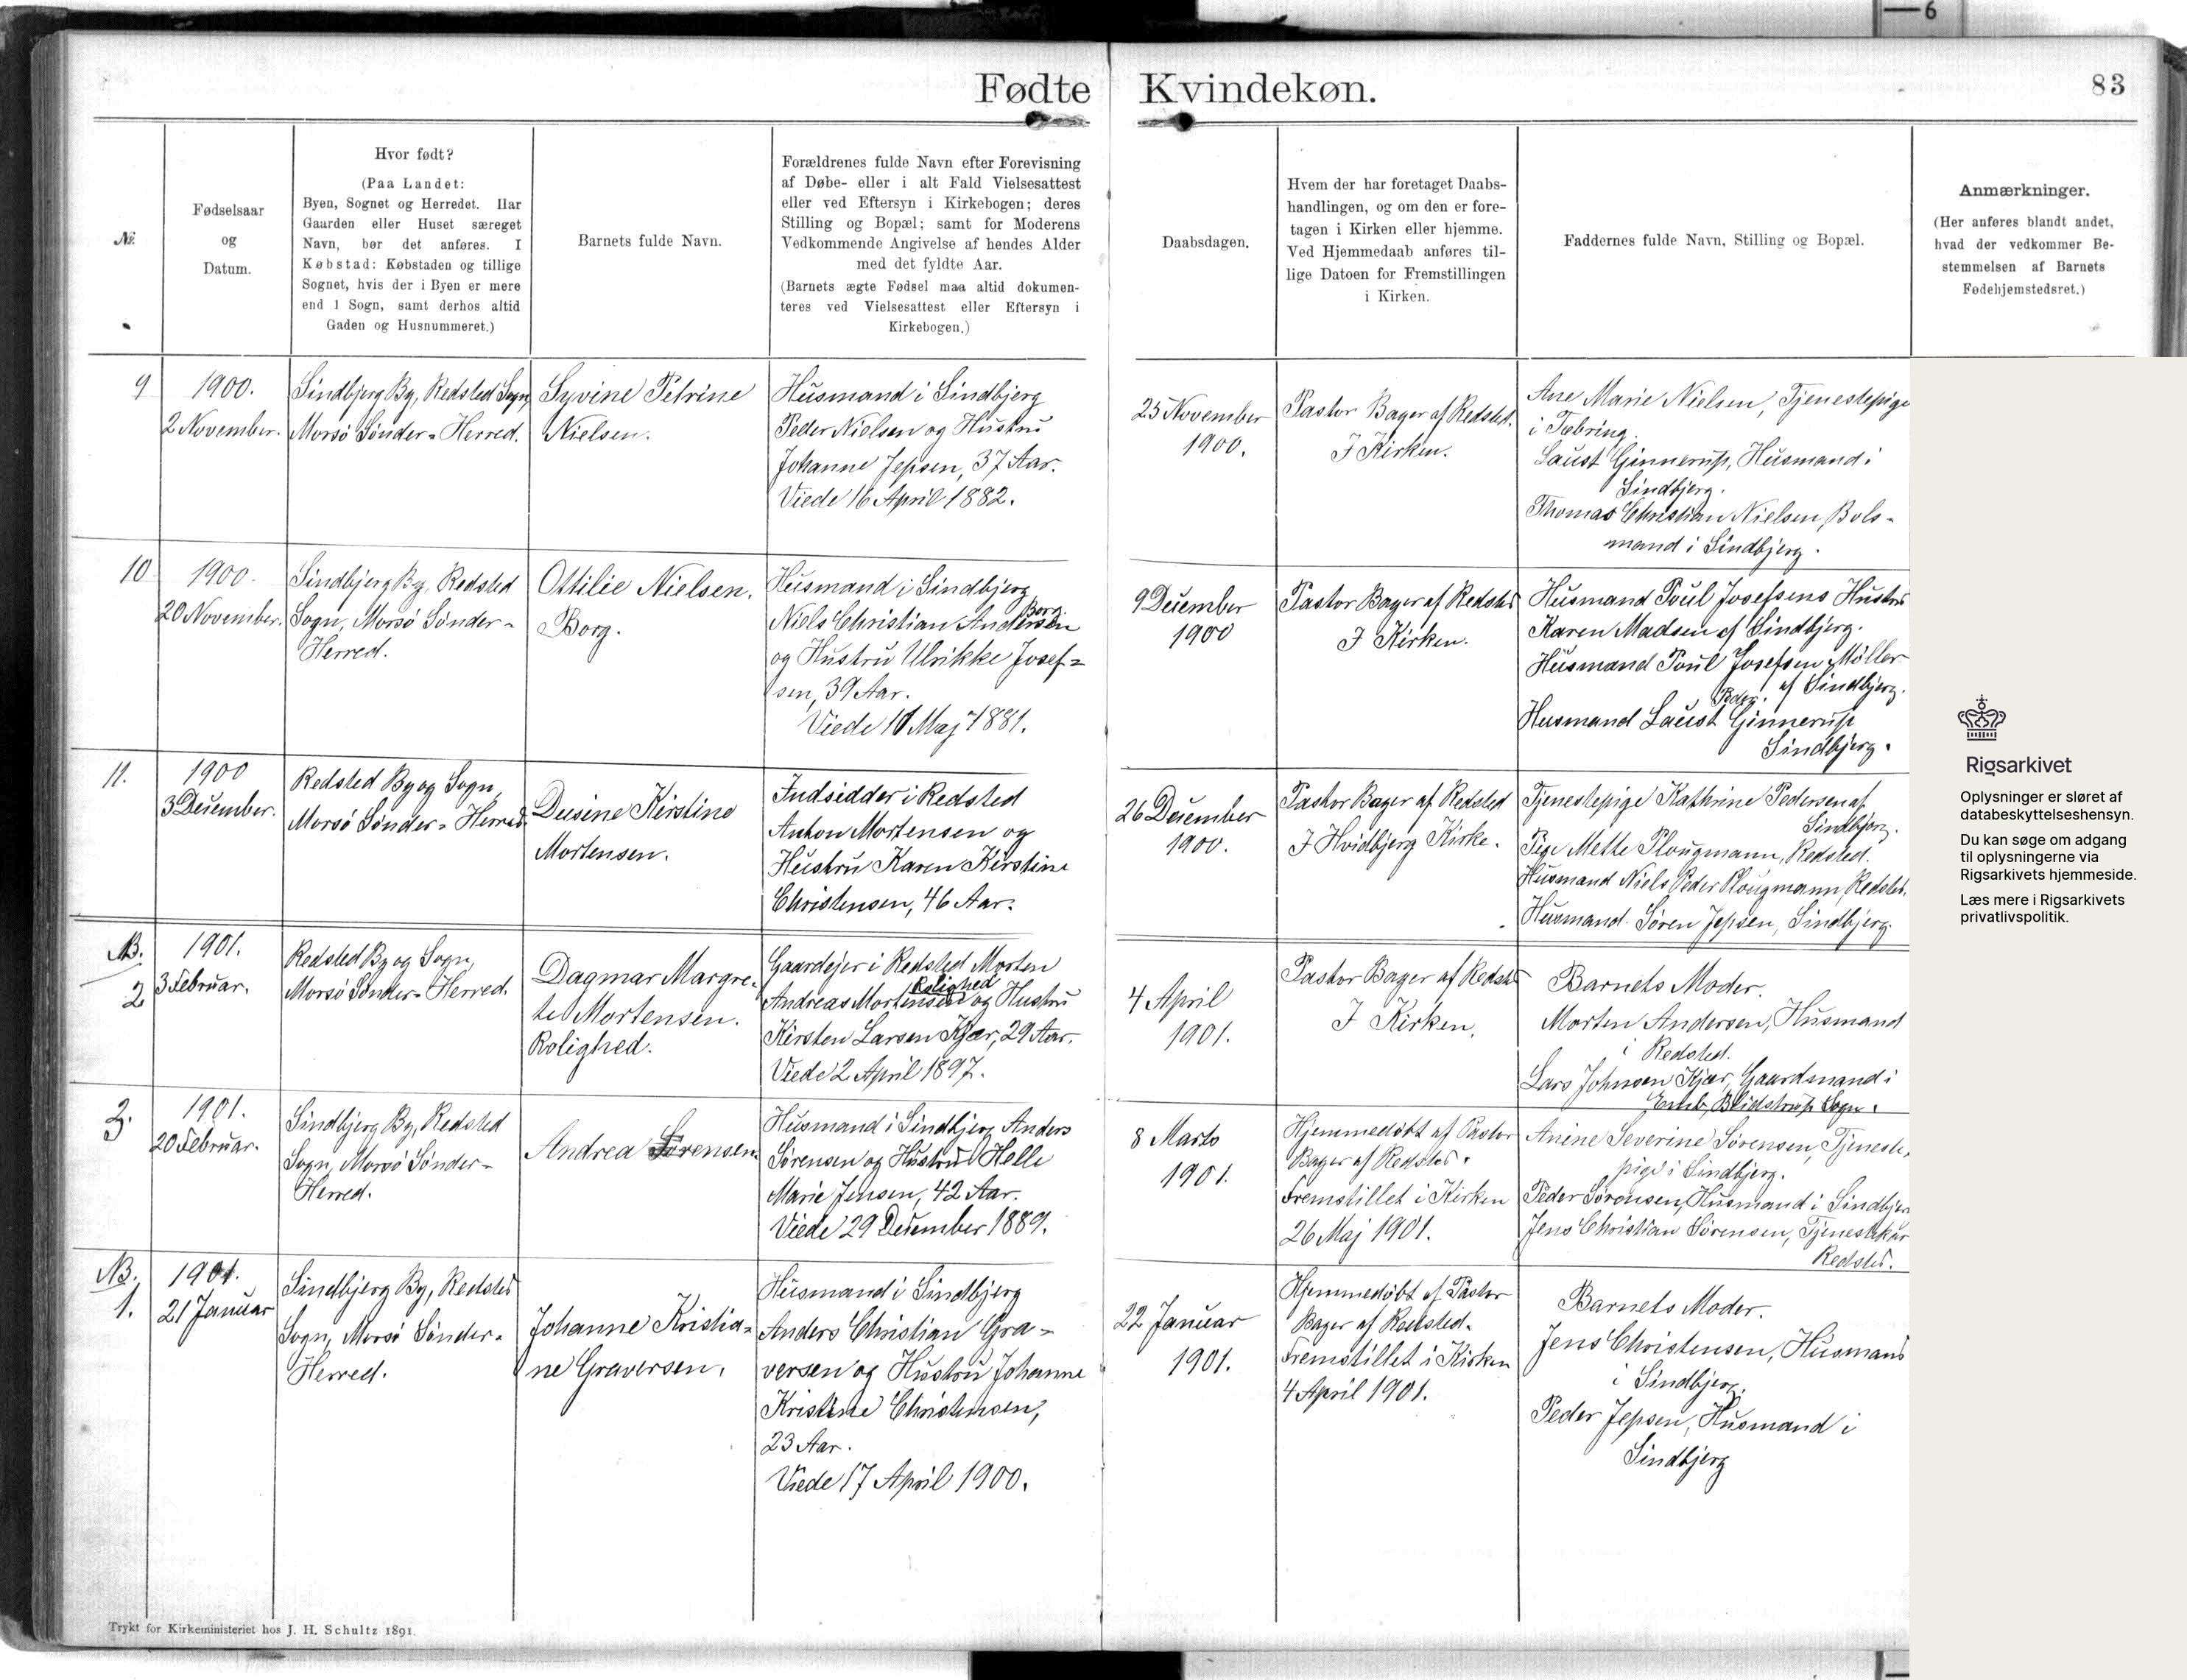 6
Fødte Kvindekøn.
83
№
Fødselsaar
og
Datum.
Hvor født?
(Paa Landet:
Byen, Sognet og Herredet. Har
Gaarden eller Huset særeget
Navn, bør det anføres. I
Købstad: Købstaden og tillige
Sognet, hvis der i Byen er mere
end 1 Sogn, samt derhos altid
Gaden og Husnummeret.)
Barnets fulde Navn.
Forældrenes fulde Navn efter Forevisning
af Døbe- eller i alt Fald Vielsesattest
eller ved Eftersyn i Kirkebogen; deres
Stilling og Bopæl; samt for Moderens
Vedkommende Angivelse af hendes Alder
med det fyldte Aar.
(Barnets ægte Fødsel maa altid dokumen-
teres ved Vielsesattest eller Eftersyn i
Kirkebogen.)
Daabsdagen.
Hvem der har foretaget Daabs-
handlingen, og om den er fore-
tagen i Kirken eller hjemme.
Ved Hjemmedaab anføres til-
lige Datoen for Fremstillingen
i Kirken.
Faddernes fulde Navn, Stilling og Bopæl.
Anmærkninger.
(Her anføres blandt andet,
hvad der vedkommer Be-
stemmelsen af Barnets
Fødehjemstedsret.)
9
1900.
2 November.
Sindbjerg By, Redsted Sogn,
Morsö Sönder=Herred.
Syvine Petrine
Nielsen.
Husmand i Sindbjerg
Peder Nielsen og Hustru
Johanne Jepsen, 37 Aar.
Viede 16 April 1882.
25 November
1900.
Pastor Bager af Redsted.
I Kirken.
Ane Marie Nielsen, Tjenestepige
i Tæbring.
Laust Ginnerup, Husmand i
Sindbjerg.
Thomas Christian Nielsen, Bols-
mand i Sindbjerg.
10
1900.
20 November.
Sindbjerg By, Redsted
Sogn, Morsö Sönder-
Herred.
Ottilie Nielsen.
Borg.
Husmand i Sindbjerg
Borg.
Niels Christian Andersen
og Hustru Ulrikke Josef=
sen, 39 Aar.
Viede 11 Maj 1881.
9 December
1900
Pastor Bager af Redsted
I Kirken.
Husmand Poul Josefsens Hustru
Karen Madsen af Sindbjerg.
Husmand Poul Josefsen Møller
af Sindbjerg.
Husmand Laust Ginnerup
Sindbjerg.
11.
1900
3 December.
Redsted By og Sogn,
Morsö Sönder=Herred.
Deusine Kirstine
Mortensen.
Indsidder i Redsted
Anton Mortensen og
Hustru Karen Kirstine
Christensen, 46 Aar.
26 December
1900.
Pastor Bager af Redsted
I Hvidbjerg Kirke.
Tjenestepige Kathrine Pedersen af
Sindbjerg.
Pige Mette Plougmann, Redsted.
Husmand Niels Peder Plougmann, Redsted.
Husmand Søren Jepsen, Sindbjerg.
NB.
2
1901.
3 Februar.
Redsted By og Sogn,
Morsö Sönder=Herred.
Dagmar Margre-
te Mortensen.
Rolighed.
Gaardejer i Redsted Morten
Rolighed
Andreas Mortensen og Hustru
Kirsten Larsen Kjær, 29 Aar.
Viede 2 April 1897.
4 April
1901.
Pastor Bager af Redsted
I Kirken.
Barnets Moder.
Morten Andersen, Husmand
i Redsted.
Lars Johnsen Kjær, Gaardmand i
Blidstrup Sogn.
3.
1901.
20 Februar.
Sindbjerg By, Redsted
Sogn, Morsö Sönder-
Herred.
Andrea Sørensen.
Husmand i Sindbjerg Anders
Sörensen og Hustru Helle
Marie Jensen, 42 Aar.
Viede 29 December 1889.
8 Marts
1901.
Hjemmedøbt af Pastor
Bager af Redsted.
Fremstillet i Kirken
26 Maj 1901.
Anine Severine Sörensen, Tjeneste-
pige i Sindbjerg.
Peder Sörensen, Husmand i Sindbjerg
Jens Christian Sörensen, Tjenestekar
Redsted.
NB.
1.
1901.
21 Januar
Sindbjerg By, Redsted
Sogn, Morsö Sönder=
Herred.
Johanne Kristia=
ne Graversen.
Husmand i Sindbjerg
Anders Christian Gra=
versen og Hustru Johanne
Kristine Christensen,
23 Aar.
Viede 17 April 1900.
22 Januar
1901.
Hjemmedøbt af Pastor
Bager af Redsted.
Fremstillet i Kirken
4 April 1901.
Barnets Moder.
Jens Christensen, Husmand
i Sindbjerg.
Peder Jepsen, Husmand i
Sindbjerg
Rigsarkivet
Oplysninger er sløret af
databeskyttelseshensyn.
Du kan søge om adgang
til oplysningerne via
Rigsarkivets hjemmeside.
Læs mere i Rigsarkivets
privatlivspolitik.
Trykt for Kirkeministeriet hos J. H. Schultz 1891.